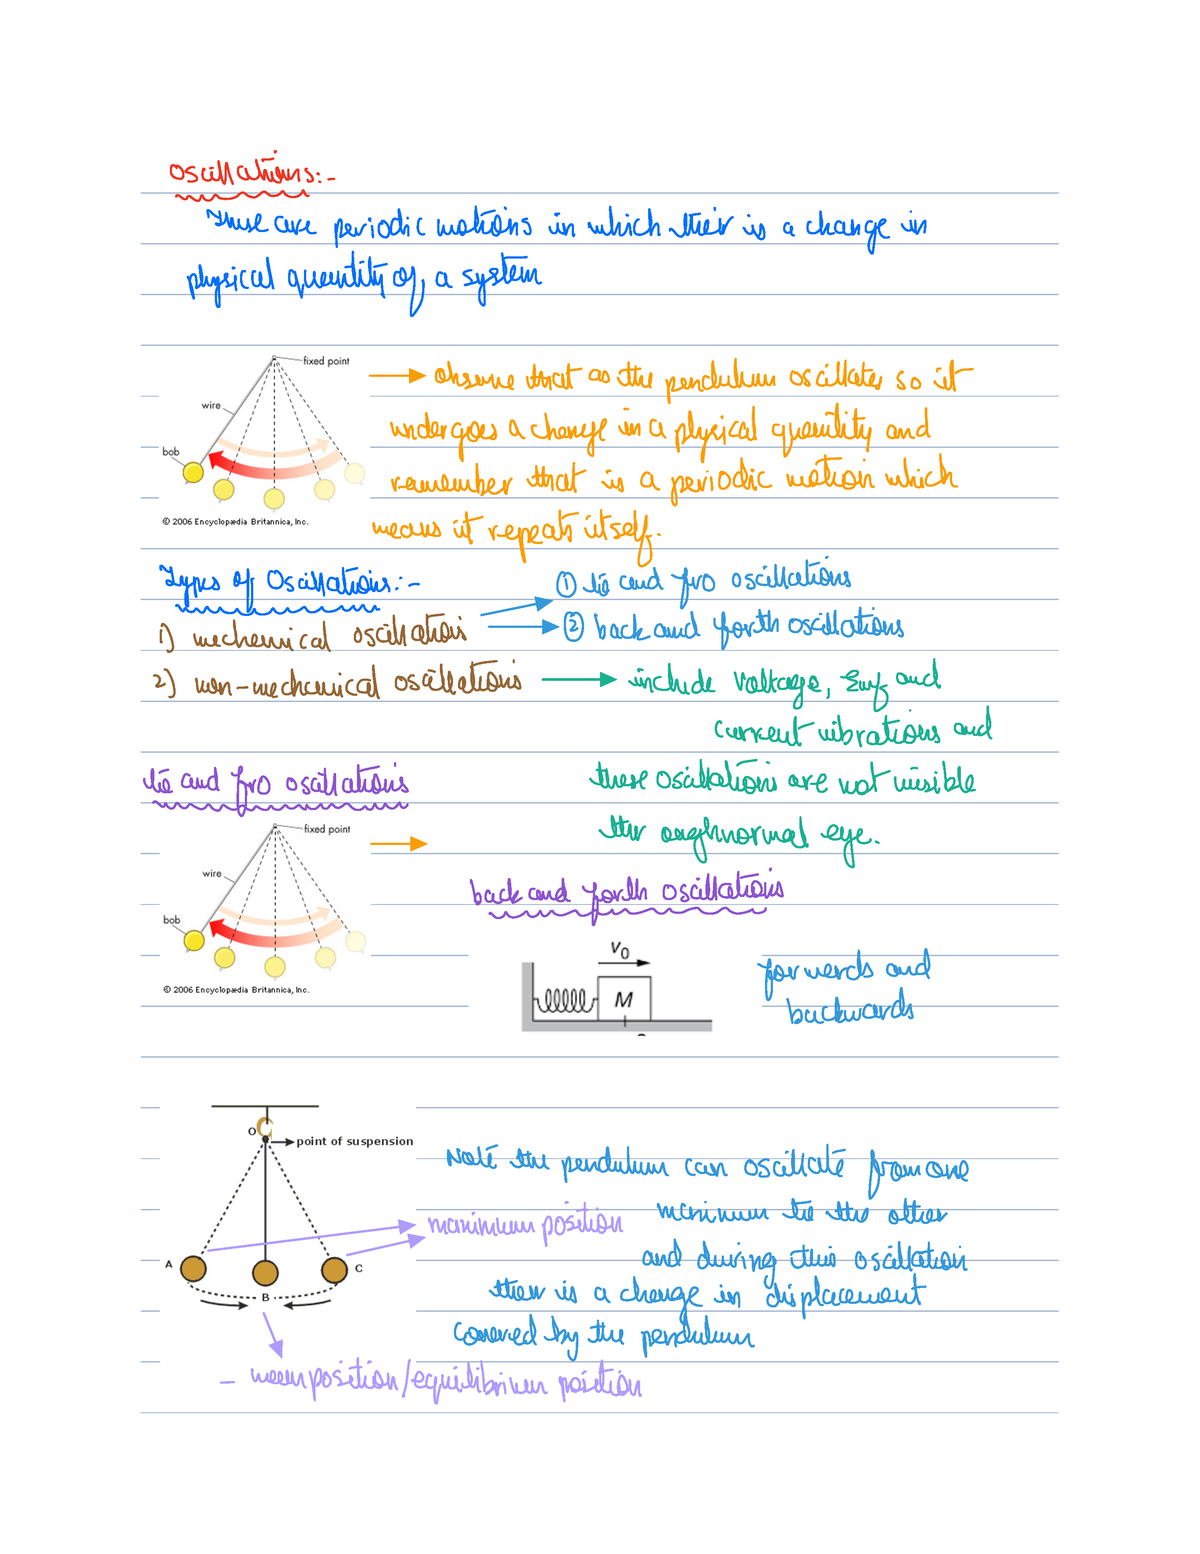 Oscillations:-
These are periodic motions in which their is a change in
physical quantity of a system
fixed point
wire
bob
© 2006 Encyclopædia Britannica, Inc.
observe that as the pendulum oscillates so it
undergoes a change in a physical quantity and
remember that is a periodic motion which
means it repeats itself.
Types of Oscillations:-
1) mechanical oscillation
① to and fro oscillations
② back and forth oscillations
2) non-mechanical oscillations
include voltage, Emf and
current vibrations and
these oscillations are not visible
through normal eye.
to and fro oscillations
fixed point
wire
bob
© 2006 Encyclopædia Britannica, Inc.
back and forth oscillations
v0
M
forwards and
backwards
O
point of suspension
A
B
C
maximum position
mean position/equilibrium position
Note the pendulum can oscillate from one
maximum to the other
and during this oscillation
their is a change in displacement
covered by the pendulum